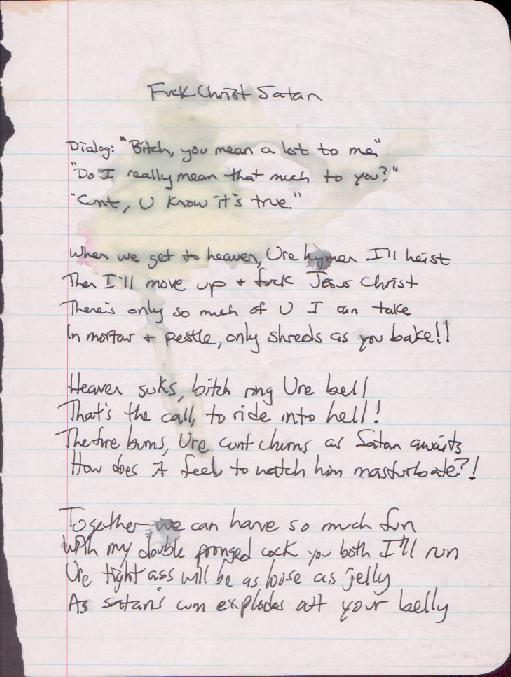 Fuck Christ Satan
Dialog: "Bitch, you mean a lot to me"
"Do I really mean that much to you?"
"Cunt, U know it's true."
When we get to heaven, Ure hymen I'll heist
Then I'll move up + fuck Jesus Christ
There's only so much of U I can take
In mortar + pestle, only shreds as you bake!!
Heaven suks, bitch ring Ure bell
That's the call, to ride into hell!
The fire burns, Ure cunt churns as Satan awaits
How does it feel to watch him masturbate?!
Together we can have so much fun
With my double pronged cock you both I'll run
Ure tight ass will be as loose as jelly
As satan's cum explodes out your belly